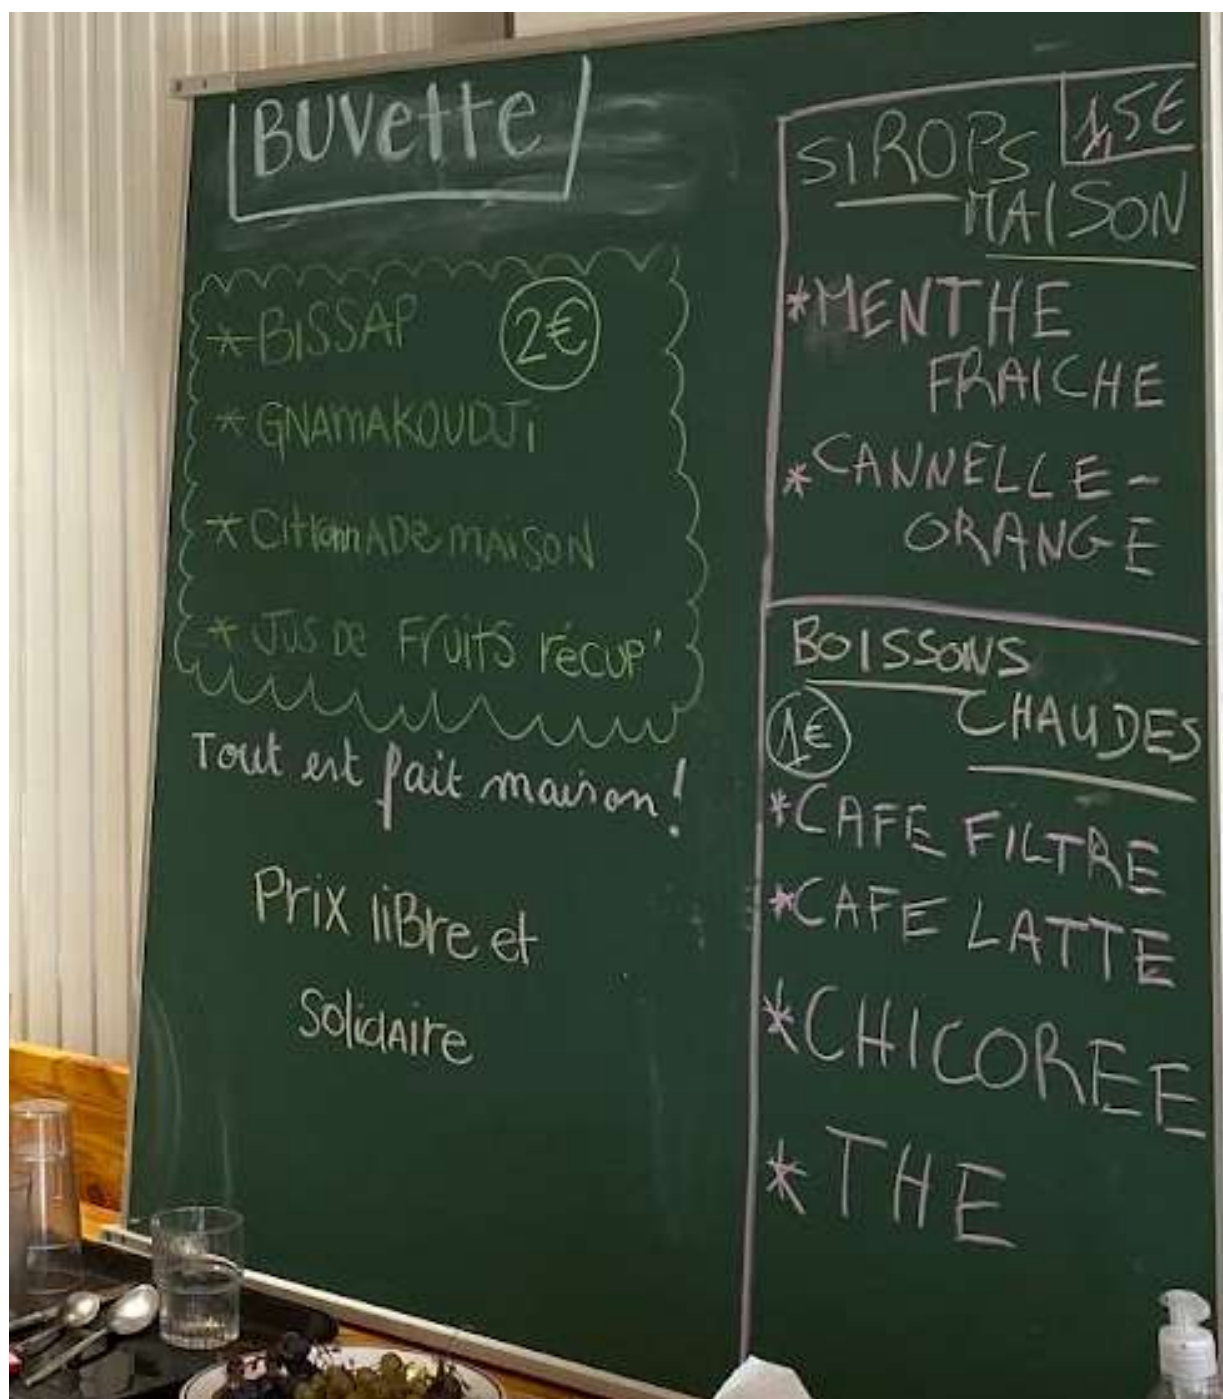 BUVette
* BISSAP 2€
* GNAMAKOUDJi
* CitronnADe MAISON
* JUS De FruitS récup'
Tout est fait maison !
Prix liBre et
SolidAire
SiROPS 1,5€
MAISON
* MENTHE
FRAICHE
* CANNELLE-
ORANGE
BOISSONS
CHAUDES
1€
* CAFE FILTRE
* CAFE LATTE
* CHICOREE
* THE